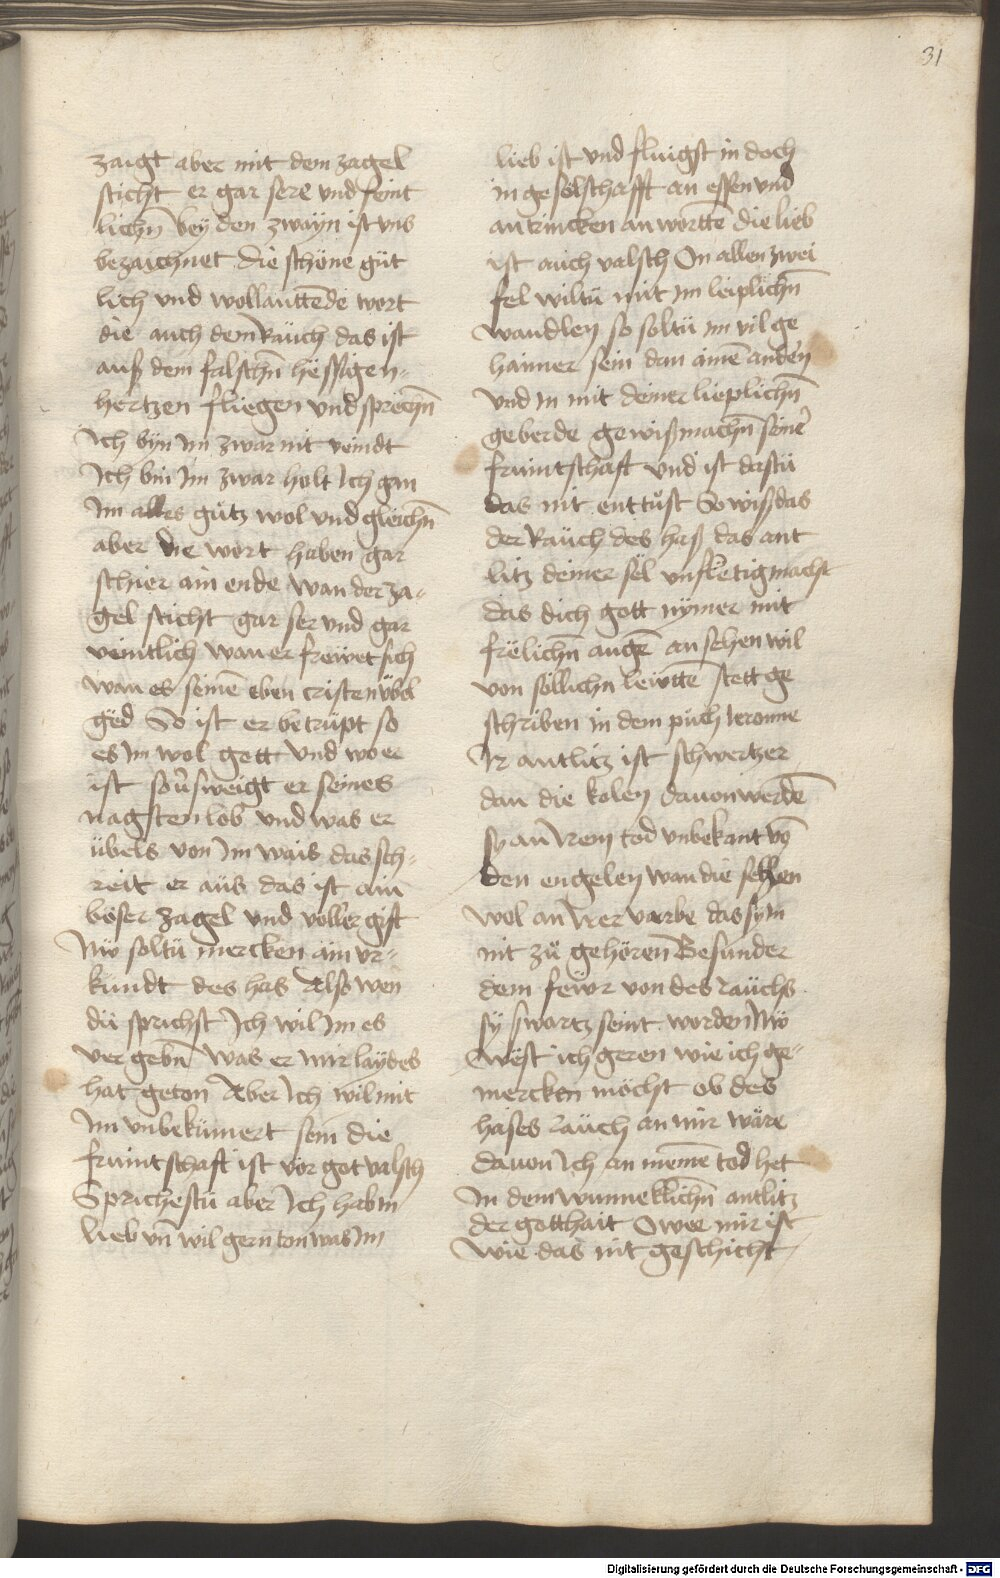 31
zaigt aber mit dem zagel
sticht er gar sere vnd feint
lichn̄ bey den zwayn ist vns
bezaichnet die schöne güt
lich vnd wollauttēde wort
die auch dem Räuch das ist
auß dem falschn̄ hëssigen
hertzen fliegen vnd sprechn̄
Ich byn im zwar nit veindt
Ich bin Im zwar holt Ich gan
Im alles gütz wol vnd gleichn̄
aber die wort haben gar
schier ain ende wan der za-
gel sticht gar ser vnd gar
veintlich wan er frëwet sich
wan es seinē eben cristen übel
gëd So ist er betrüpt so
es Im wol gett vnd wo er
ist so v̉sweigt er seines
nagsten lob vnd was er
übels von Im wais das sch-
reit er aüs das ist ain
böser zagel vnd voller gift
Nŵ soltü mercken ain vr-
kundt des has Also wen
dü sprichst Ich wil Im es
vergebn̄ was er mir laydes
hat geton Aber Ich wil mit
Im vnbekümert sein die
fruintschaft ist vor got valsch
Sprichestü aber Ich hab in
lieb vn̄ wil gern ton was Im
lieb ist vnd fluigst in doch
in geselschafft an essen vnd
an trincken an wortē die lieb
ist auch valsch On allen zwei
fel wiltü mit im leiplichn̄
wandlen so soltü im vil ge
haimer sein dan ainē andern
Vnd in mit deiner lieplichn̄
geberde gewiß machn̄ seiner
fruintschaft vnd ist dastü
das nit enttüst So wiss das
der Räuch des haß das ant
litz deiner sel vnflëtig macht
das dich gott nymer mit
frëlichn̄ augē an sehen wil
von söllichn lewttē stett ge
schriben in dem püch Ieronie
Ir antlitz ist schwertzer
dan die kolen dauon werdē
sy an Irem tod vnbekant võ
den engelen wan die sehen
wol an Irer varbe das sy in
nit zü gehören Besunder
dem feẅr von des räuchs
sy swartz seint worden Nŵ
Wëst ich geren wie ich ge-
mercken möcht ob des
hases räuch an mir wäre
dauon Ich an meinē tod het
In dem wunneklichn̄ antlitz
der gotthait Owee mir ist
wie das nit geschicht
Digitalisierung gefördert durch die Deutsche Forschungsgemeinschaft - DFG